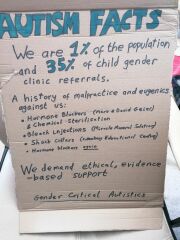 AUTISM FACTS
We are 1% of the population
and 35% of child gender
clinic referrals.
A history of malpractice and eugenics
against us:
• Hormone Blockers (Mark & David Geier)
& Chemical Sterilisation
• Bleach Injections (Miracle Mineral Solution)
• Shock Collars (Judge Rotenberg Educational Center)
• Hormone blockers again
We demand ethical, evidence
-based support
Gender Critical Autistics